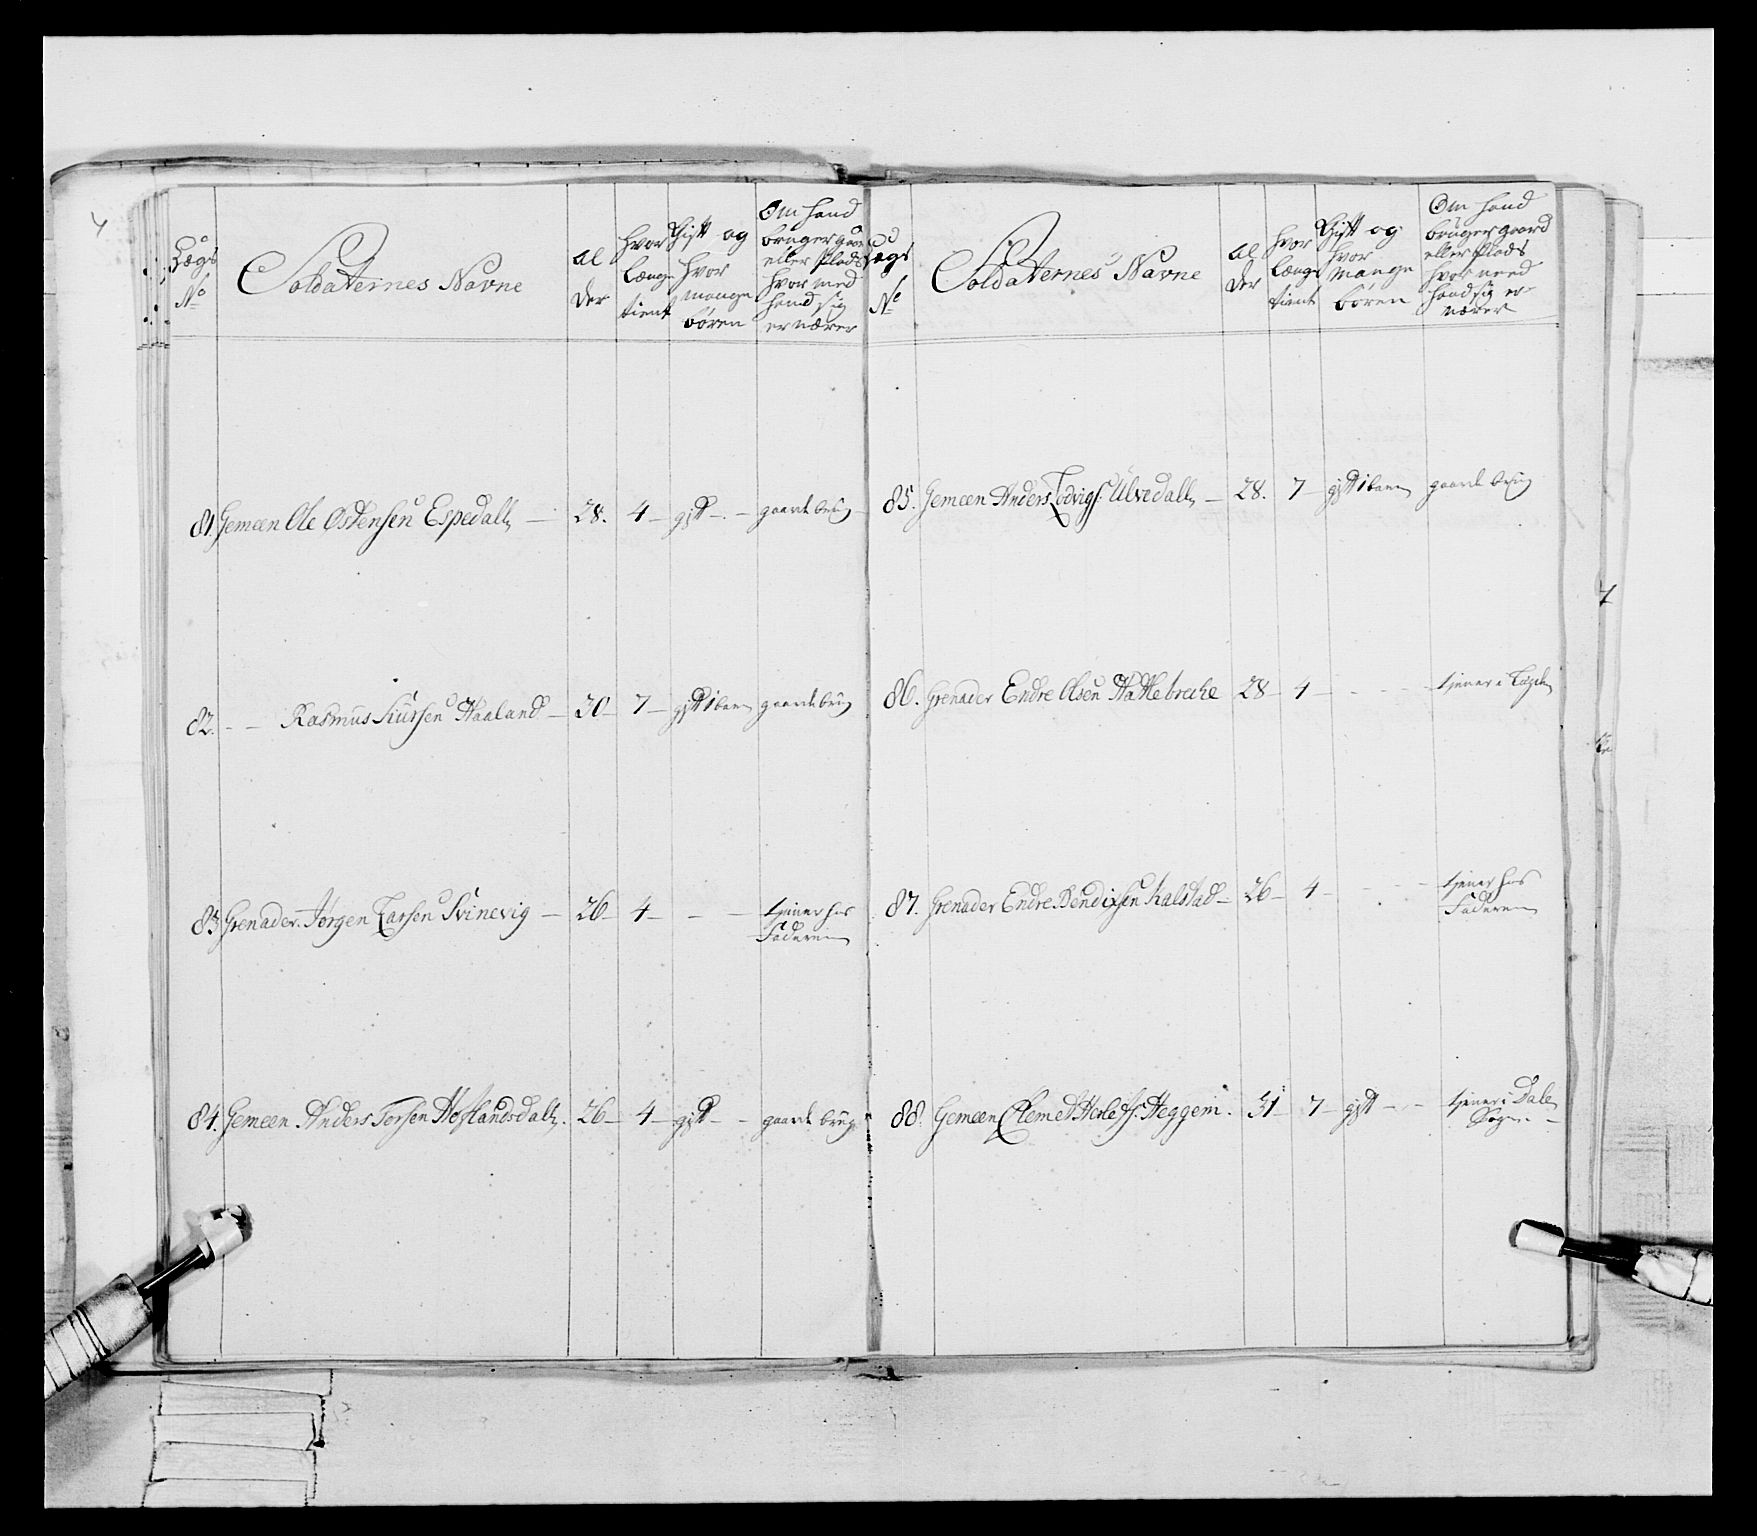 Lægs No
Soldaternes Navne
al der
hvor længe tient
Gift og hvor mange bören
Om hand bruger gaard eller Plads hvor med hand sig ernærer
81. Gemeen Ole Ostensen Espedall — 28. 4 — gift — gaarde brug
82. — — Rasmus Siursen Haaland — 30 — 7 — gift 1 barn gaarde brug
83 Grenader Jørgen Larsen Svinevig — 26 — 4 — — — tjener hos
Faderen
84. Gemeen Anders Torsen Hoflandsdall. 26 — 4 — gift — gaarde brug
Lægs No
Soldaternes Navne
al der
hvor længe tient
Gift og hvor mange bören
Om hand bruger gaard eller Plads hvor med hand sig er nærer
85. Gemeen Anders Lodvigs: Ulvedall — 28. 7 — gift 1 barn gaarde brug
86. Grenader Endre Olsen Hattlebrecke 28 — 4 — — — — tjener i
87. Grenader Endre Bendixsen Kalstad — 26 — 4 — — — — tjener hos
Faderen
88. Gemeen Clemet Herlefs: Heggem. 31 — 7 — gift — — tjener i Dale
Sogn —